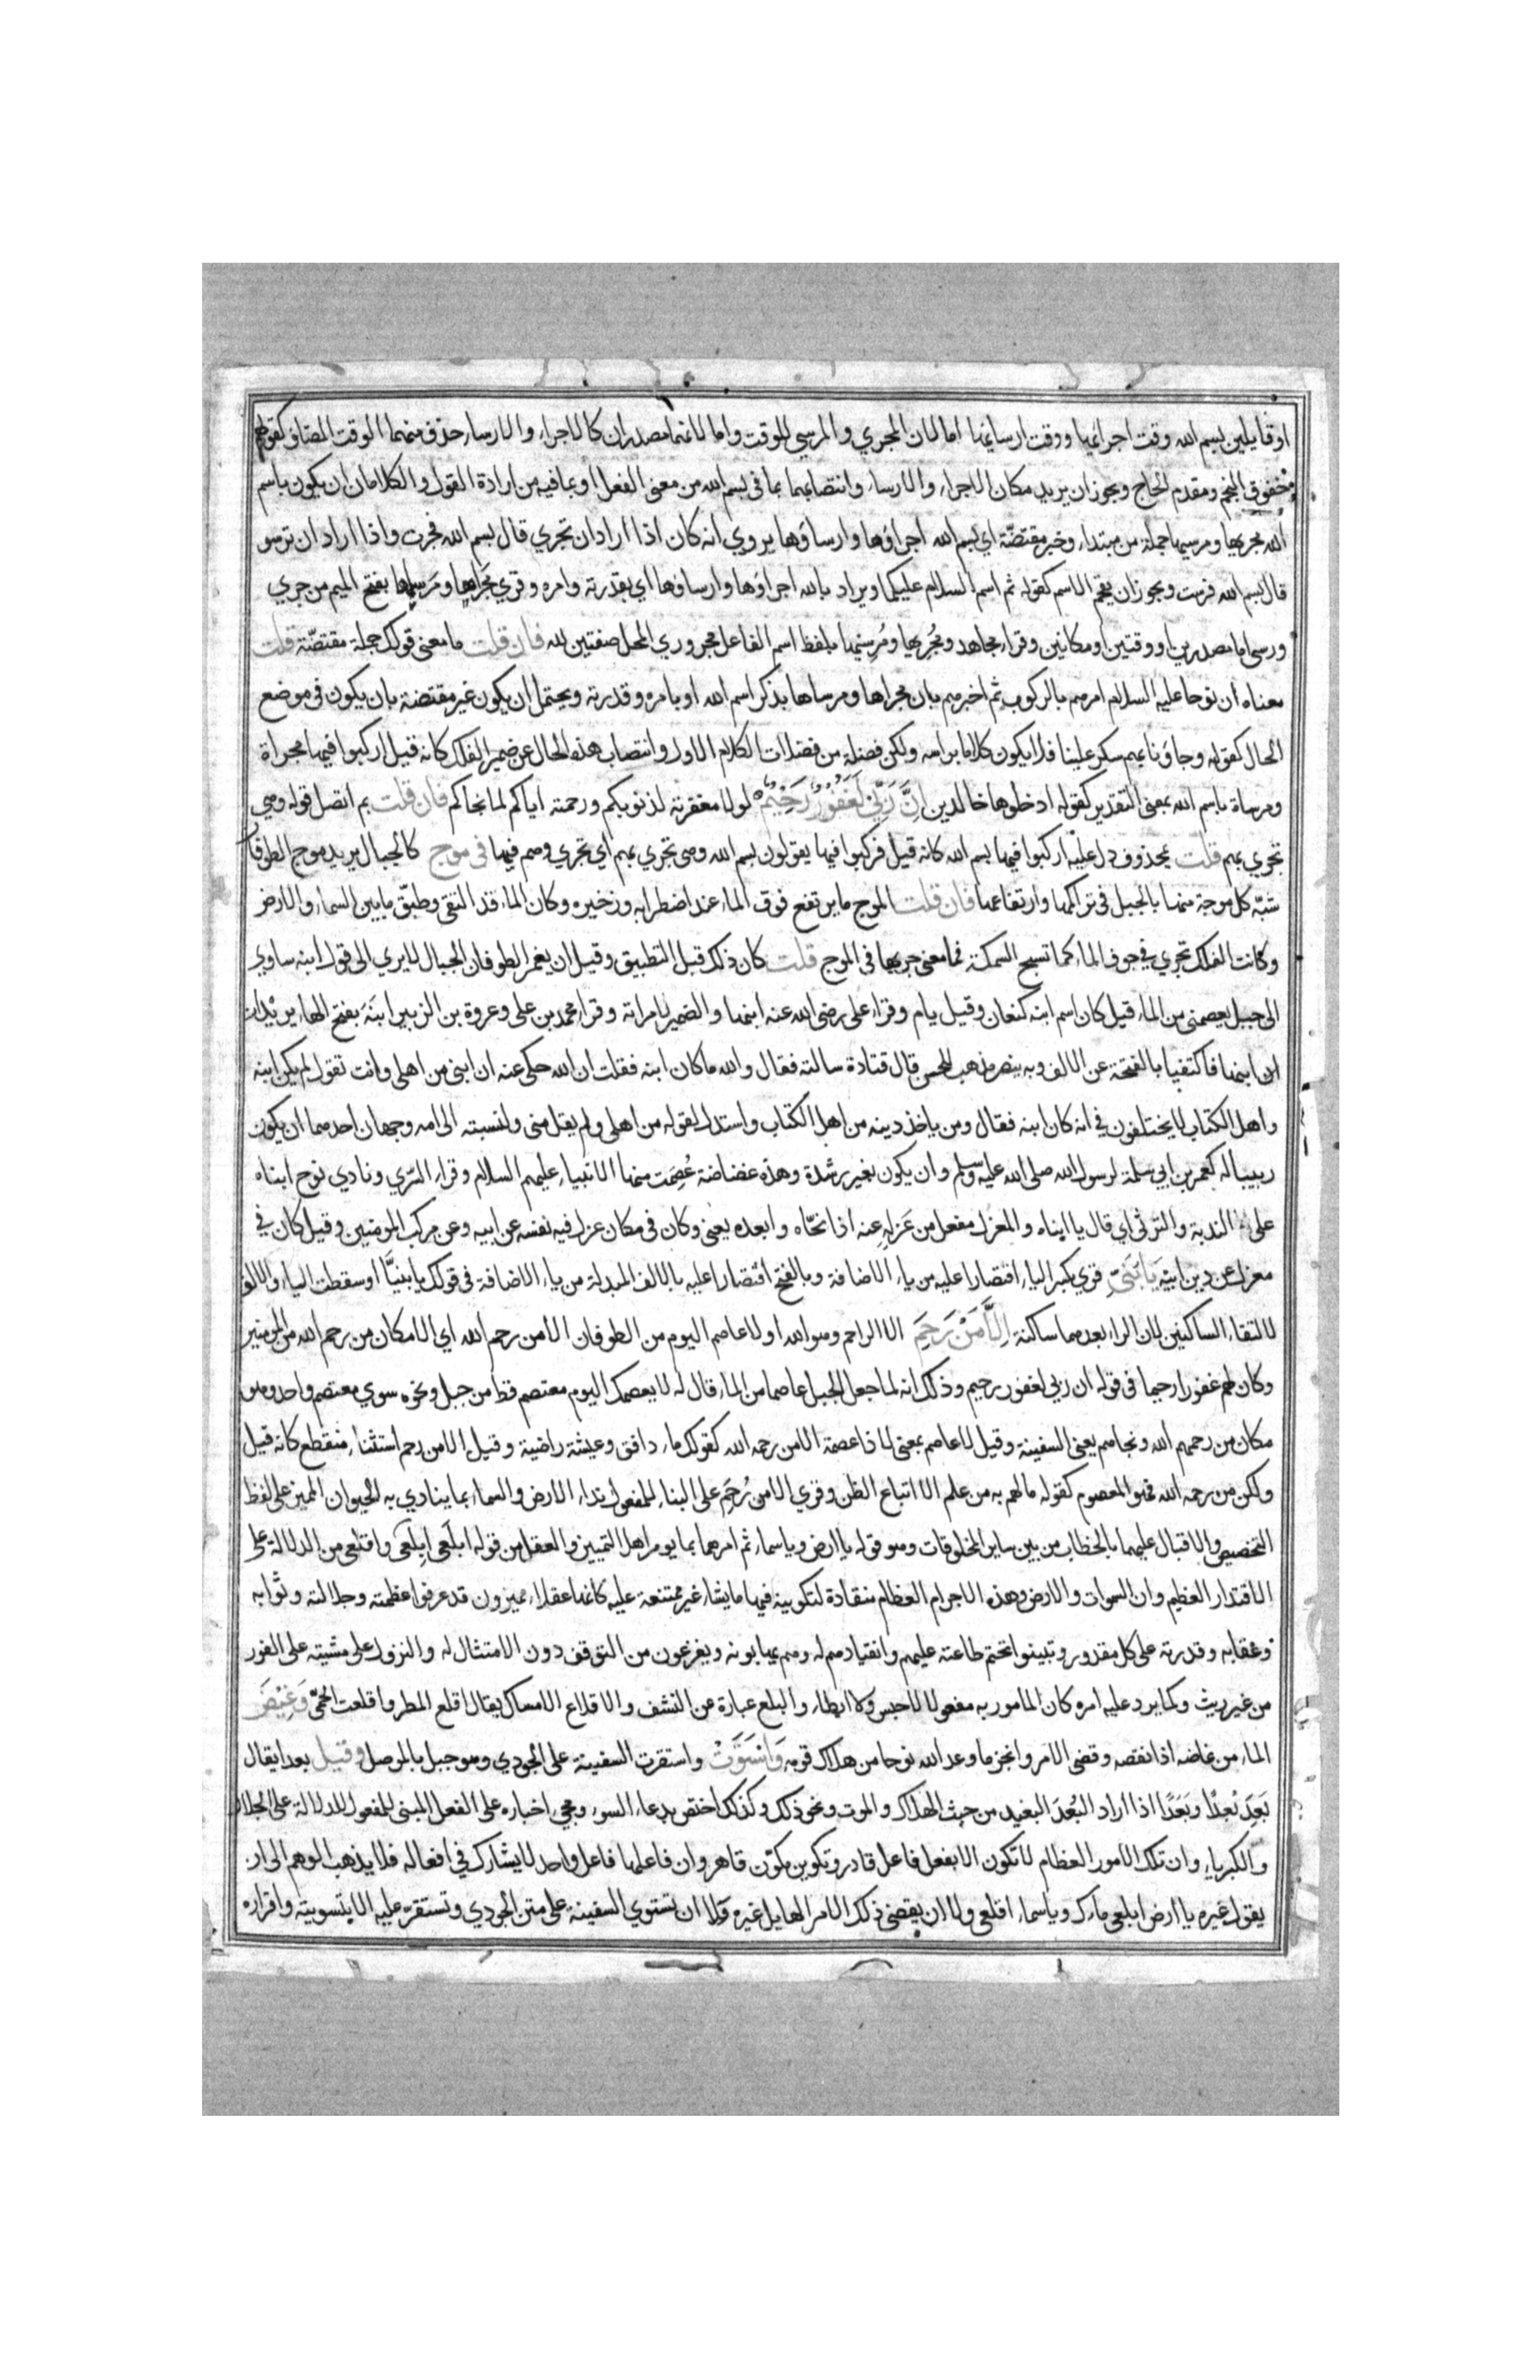 او قايلين بسم الله وقت اجرائها ووقت ارسائها اما لان المجري والمرسي للوقت واما لانهما مصدران كالاجراء والارساء حذف منهما الوقت المضاف كقولهم
خفوق النجم ومقدم الحاج ويجوز ان يريد مكان الاجراء والارساء وانتصابهما بما في بسم الله من معنى الفعل او بما فيه من ارادة القول والكلامان ان يكون باسم
الله مجريها ومرسيها جملة من مبتداء وخبر مقتضّة اي بسم الله اجراؤها وارساؤها يروي انه كان اذا اراد ان تجري قال بسم الله فجرت واذا اراد ان ترسو
قال بسم الله فرست ويجوز ان يقحم الاسم كقوله ثم اسم السلام عليكما ويراد بالله اجراؤها وارساؤها اي بقدرته وامره وقري مَجراها ومَرسيها بفتح الميم من جري
ورسى اما مصدرين او وقتين او مكانين وقراء مجاهد ومُجْرِيها ومُرسِيها بلفظ اسم الفاعل مجروري المحل صفتين لله فان قلت ما معنى قولك جملة مقتضّة قلت
معناه ان نوحا عليه السلام امرهم بالركوب ثم اخبرهم بان مجراها ومرساها بذكر اسم الله او بامره وقدرته ويحتمل ان يكون غير مقتضة بان يكون في موضع
الحال كقوله وجاؤنا بهم سكر علينا فلا يكون كلاما براسه ولكن فضلة من فضلات الكلام الاول وانتصاب هذه الحال عن ضمير الفلك كانه قيل اركبوا فيها مجراة
ومرساة باسم الله بمعنى التقدير كقوله ادخلوها خالدين اِنَّ رَبِّي لَغَفُوْرٌ رَحِيْمٌ لولا مغفرته لذنوبكم ورحمته اياكم لما نجاكم فان قلت بم اتصل قوله وهي
تجري بهم قلت بمحذوف دل عليه اركبوا فيها بسم الله كانه قيل فركبوا فيها يقولون بسم الله وهي تجري بهم اي تجري وهم فيها في موج كالجبال يريد موج الطوفان
شبّه كل موجة منها بالجبل في تراكمها وارتفاعها فان قلت الموج ما يرتفع فوق الماء عند اضطرابه وزخيره وكان الماء قد التقى وطبّق ما بين السماء والارض
وكانت الفلك تجري في جوف الماء كما تسبح السمكة فما معنى جريها في الموج قلت كان ذلك قبل التطبيق وقبل ان يغمر الطوفان الجبال الا يري الى قول ابنه ساوي
الى جبل يعصمني من الماء قيل كان اسم ابنه كنعان وقيل يام وقراء على رضى الله عنه ابنها والضمير لامراته وقراء محمد بن على وعروة بن الزبير ابنَهَ بفتح الهاء يريدان
ان ابنها فاكتفيا بالفتحة عن الالف وبه ينصر مذهب الحسن قال قتادة سالته فقال والله ما كان ابنه فقلت ان الله حكى عنه ان ابني من اهلي وانت تقول لم يكن ابنه
واهل الكتاب لا يختلفون في انه كان ابنه فقال ومن ياخذ دينه من اهل الكتاب واستدل بقوله من اهلي ولم يقل منى ولنسبته الى امه وجهان احدهما ان يكون
ربيبا له كعمر بن ابي سلمة لرسول الله صلى الله عليه وسلم وان يكون لغير رشدة وهذه غضاضة عُصِمَت منها الانبياء عليهم السلام وقراء السّري ونادي نوح ابناه
على الندبة والترثي اي قال يا ابناه والمعزل مفعل من عَزلهِ عنه اذا نحّاه وابعده يعني وكان في مكان عزل فيه نفسه عن ابيه وعن مركب المومنين وقيل كان في
معزل عن دين ابيه يَا بُنَيِّ قري بكسر الياء اقتصارا عليه من ياء الاضافة وبالفتح اقتصارا عليه بالالف المبدلة من ياء الاضافة في قولك يا بنيَّا او سقطت الياء والالف
لالتقاء الساكنين لان الراء بعدهما ساكنة اِلَّا مَنْ رَحِمَ الا الراحم وهو الله او لا عاصم اليوم من الطوفان الا من رحم الله اي الا مكان من رحم الله من المومنين
وكان لهم غفورا رحيما في قوله ان ربي لغفور رحيم وذلك انه لما جعل الجبل عاصما من الماء قال له لا يعصمك اليوم معتصم قط من جبل ونحوه سوي معتصم واحد وهو
مكان من رحمهم الله ونجاهم يعني السفينة وقيل لا عاصم بمعنى لا ذا عصمة الا من رحمه الله كقولك ماء دافق وعيشة راضية وقيل الا من رحم استثناء منقطع كانه قيل
ولكن من رحمه الله فهو المعصوم كقوله ما لهم به من علم الا اتباع الظن وقري الا من رُحِمَ على البناء للمفعول نداء الارض والسماء بما ينادي به الحيوان المميز على لفظ
التخصيص والاقبال عليهما بالخطاب من بين ساير المخلوقات وهو قوله يا ارض ويا سماء ثم امرهما بما يومر اهل التمييز والعقل من قوله ابلَعى ابِلعَى واقلعي من الدلالة على
الاقتدار العظيم وان السموات والارض وهذه الاجرام العظام منقادة لتكوينه فيها ما يشاء غير ممتنعة عليه كانها عقلاء مميزون قد عرفوا عظمته وجلالته وثوابه
وعقابه وقدرته على كل مقدور وتبينوا تحتم طاعته عليهم وانقيادهم له وهم يهابونه ويفزعون من التوقف دون الامتثال له والنزول على مشيته على الفور
من غير ريث وكما يرد عليه امره كان المامور به مفعولا لا حبس ولا ابطاء والبلع عبارة عن النشف والاقلاع الامساك يقال اقلع المطر واقلعت الحمّى وَغِيْضَ
الماء من غاضه اذا نقصه وقضي الامر وانجز ما وعد الله نوحا من هلاك قومه وَاسْتَوَتْ واستقرت السفينة على الجودي وهو جبل بالموصل وقيل بعدا يقال
بَعِدَ بُعدًا وبَعَدًا اذا اراد البُعدَ البعيد من حيث الهلاك والموت ونحو ذلك وكذلك اختص بدعاء السوء ومجيء اخباره على الفعل المبني للمفعول للدلالة على الجلال
والكبرياء وان تلك الامور العظام لا تكون الا بفعل فاعل قادر وتكوين مكوّن قاهر وان فاعلها فاعل واحد لا يشارك في افعاله فلا يذهب الوهم الى ان
يقول غيره يا ارض ابلعي ماءك ويا سماء اقلعي ولا ان يقضي ذلك الامر الهايل غيره ولا ان تستوي السفينة على متن الجودي وتستقر عليه الا بتسويته واقراره